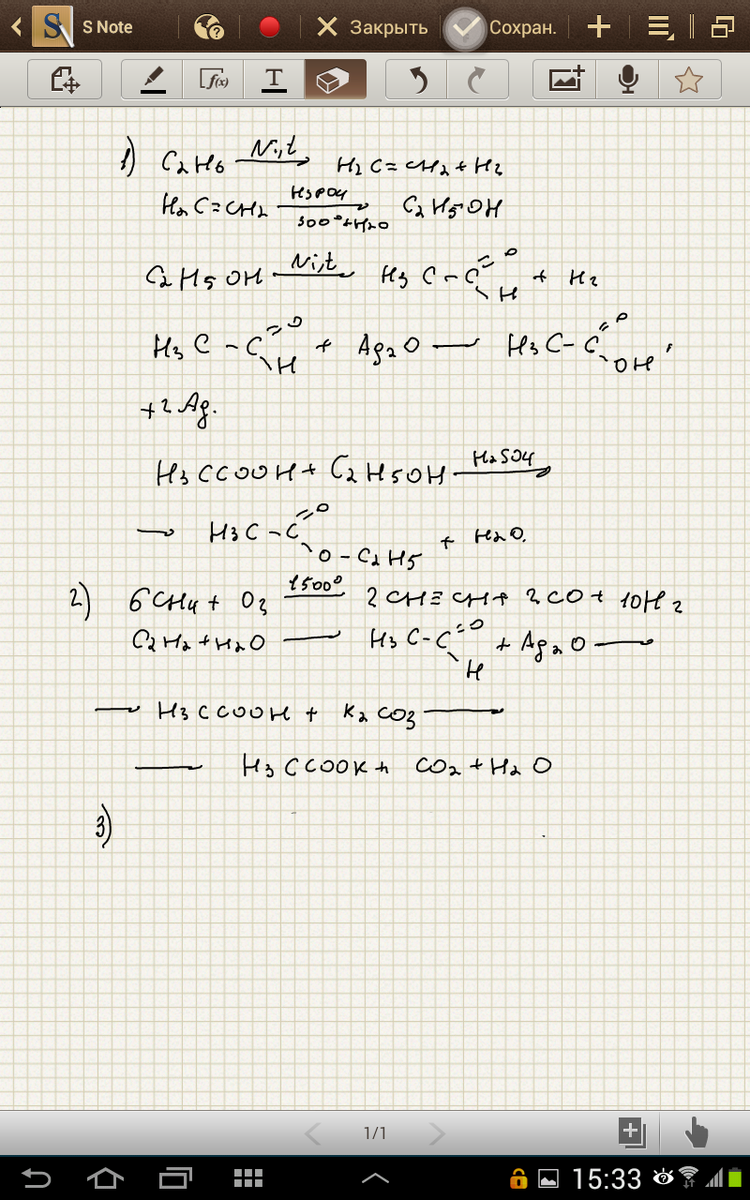 S Note Закрыть Сохран.
1) C2H6 —Ni,t→ H2C=CH2+H2
H2C=CH2 —H3PO4 300°+H2O→ C2H5OH
C2H5OH —Ni,t→ H3C-C(=O)H + H2
H3C-C(=O)H + Ag2O — H3C-C(=O)OH
+2Ag.
H3CCOOH+C2H5OH —H2SO4→
→ H3C-C(=O)O-C2H5 + H2O.
2) 6CH4+ O3 —1500°— 2CH≡CH+ 2CO+ 10H2
C2H2+H2O — H3C-C(=O)H + Ag2O —
→ H3CCOOH + K2CO3 →
— H3CCOOK+ CO2+H2O
3)
1/1
15:33